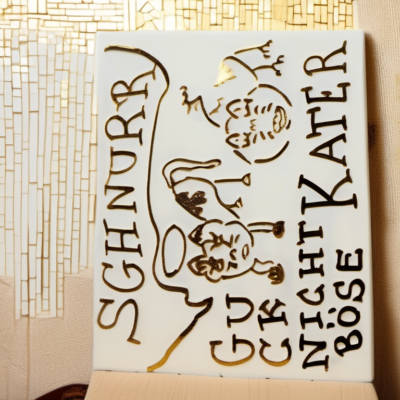 SCHNURR
GU
CK
NICHT
BÖSE
KATER